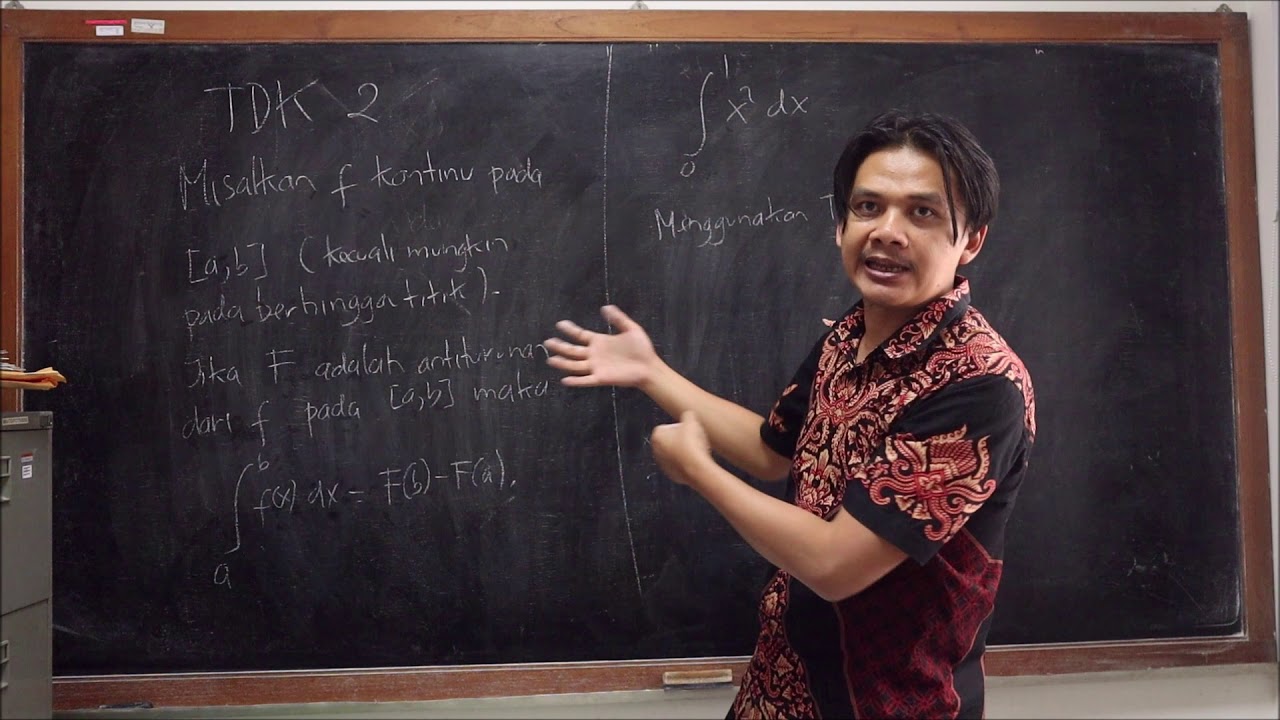 TDK 2
Misalkan f kontinu pada
[a,b] (kecuali mungkin
pada berhingga titik).
Jika F adalah antiturunan
dari f pada [a,b] maka
∫ₐᵇ f(x) dx = F(b) - F(a).
∫₀¹ x² dx
Menggunakan T